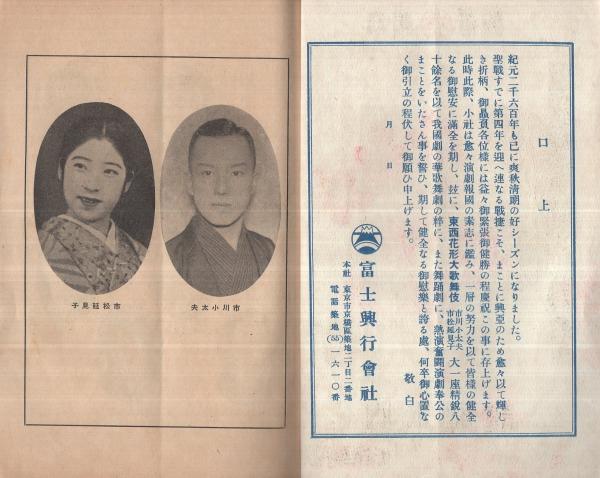 口上
紀元二千六百年も已に爽秋清朗の好シーズンになりました。
聖戰すでに第四年を迎へ連なる戰捷こそ、まことに興亞のため愈々以て輝し
き折柄、御贔負各位樣には益々御緊張御健勝の程慶祝この事に存上げます。
此時此際、小社は愈々演劇報國の素志に鑑み、一層の努力を以て皆樣の健全
なる御慰安に滿全を期し、玆に、東西花形大歌舞伎 市川小太夫 市松延見子 大一座精銳八
十餘名を以て我國劇の華歌舞劇の粹に、また舞踊劇に、熱演奮鬪演劇奉公の
まことをいたさん事を誓ひ、期して健全なる御慰樂と誇る處、何卒御心置な
く御引立の程伏して御願ひ申上げます。
敬白
月 日
富士興行會社
本社 東京市京橋區築地二丁目二番地
電話築地(55)一六一〇番
市川小太夫
市松延見子